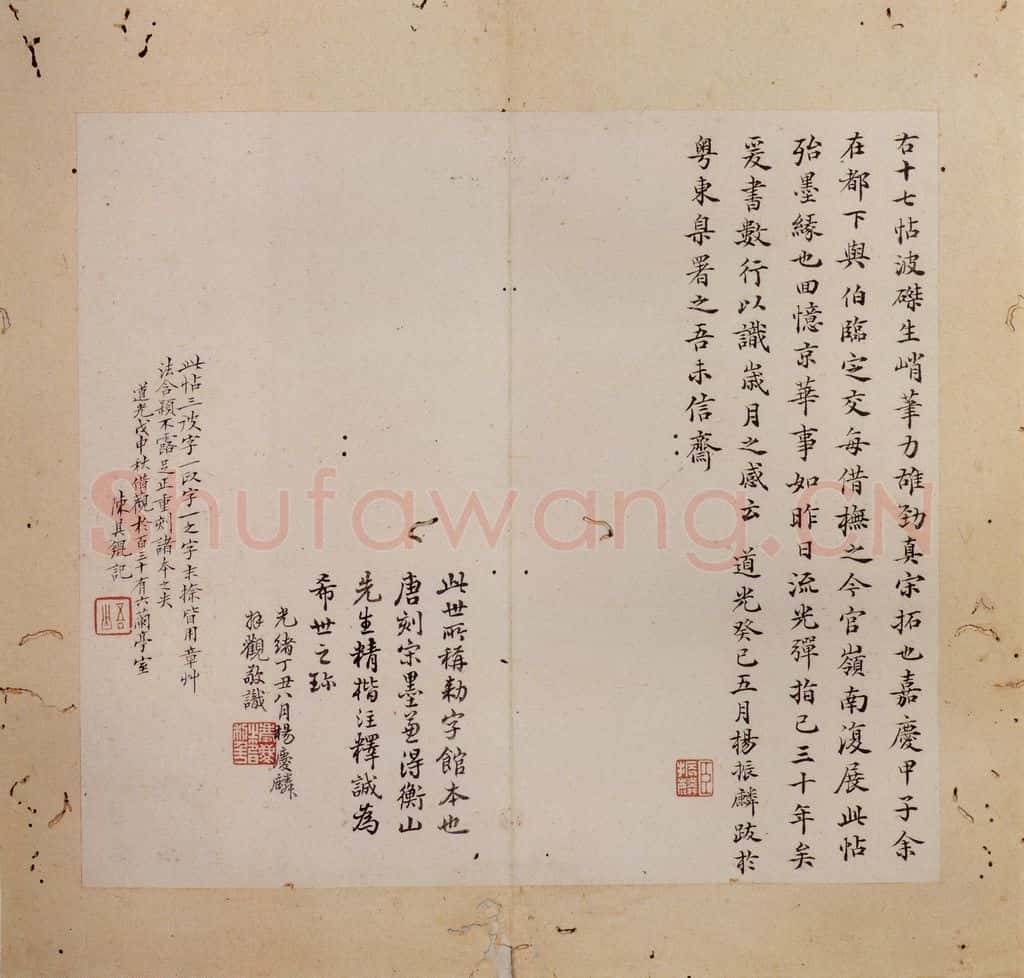 右十七帖波磔生峭筆力雄勁真宋拓也嘉慶甲子余
在都下與伯臨定交每借橅之今官嶺南復展此帖
殆墨緣也回憶京華事如昨日流光彈指已三十年矣
爰書數行以識歲月之感云 道光癸巳五月楊振麟跋於
粵東臬署之吾未信齋
此世所稱勑字館本也
唐刻宋墨兼得衡山
先生精楷注釋誠為
希世之珎
光緒丁丑八月楊慶麟
拜觀敬識
此帖三改字一以字一之字末捺皆用章艸
法含穎不露足正重刻諸本之失
道光戊申秋借觀於百三十有六蘭亭室
陳其錕記
Shufawang.CN